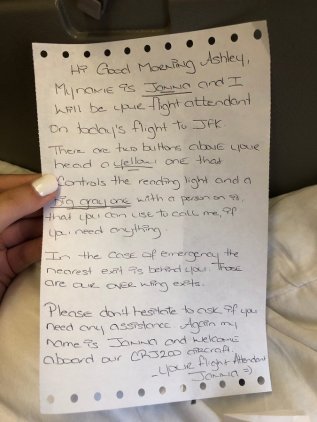 Hi Good Morning Ashley,
My name is Janna and I
will be your flight attendant
on today's flight to JFK.
There are two buttons above your
head a yellow one that
controls the reading light and a
big gray one with a person on it,
that you can use to call me, if
you need anything.
In the case of emergency the
nearest exit is behind you. Those
are our over wing exits.
Please don't hesitate to ask if you
need any assistance. Again my
name is Janna and welcome
aboard our CRJ200 aircraft.
- Your flight Attendant
Janna =)